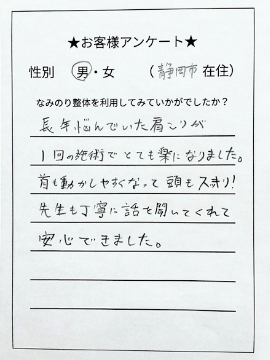 ★お客様アンケート★
性別 男・女 （静岡市在住）
なみのり整体を利用してみていかがでしたか？
長年悩んでいた肩こりが
1回の施術でとても楽になりました。
首も動かしやすくなって頭もスッキリ！
先生も丁寧に話を聞いてくれて
安心できました。